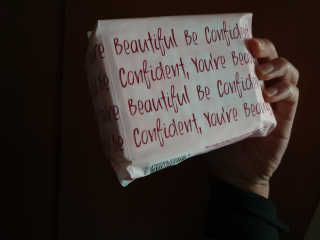 re Beautiful Be Confide
Confident, You're Bea
re Beautiful Be Confid
Confident, You're Bea